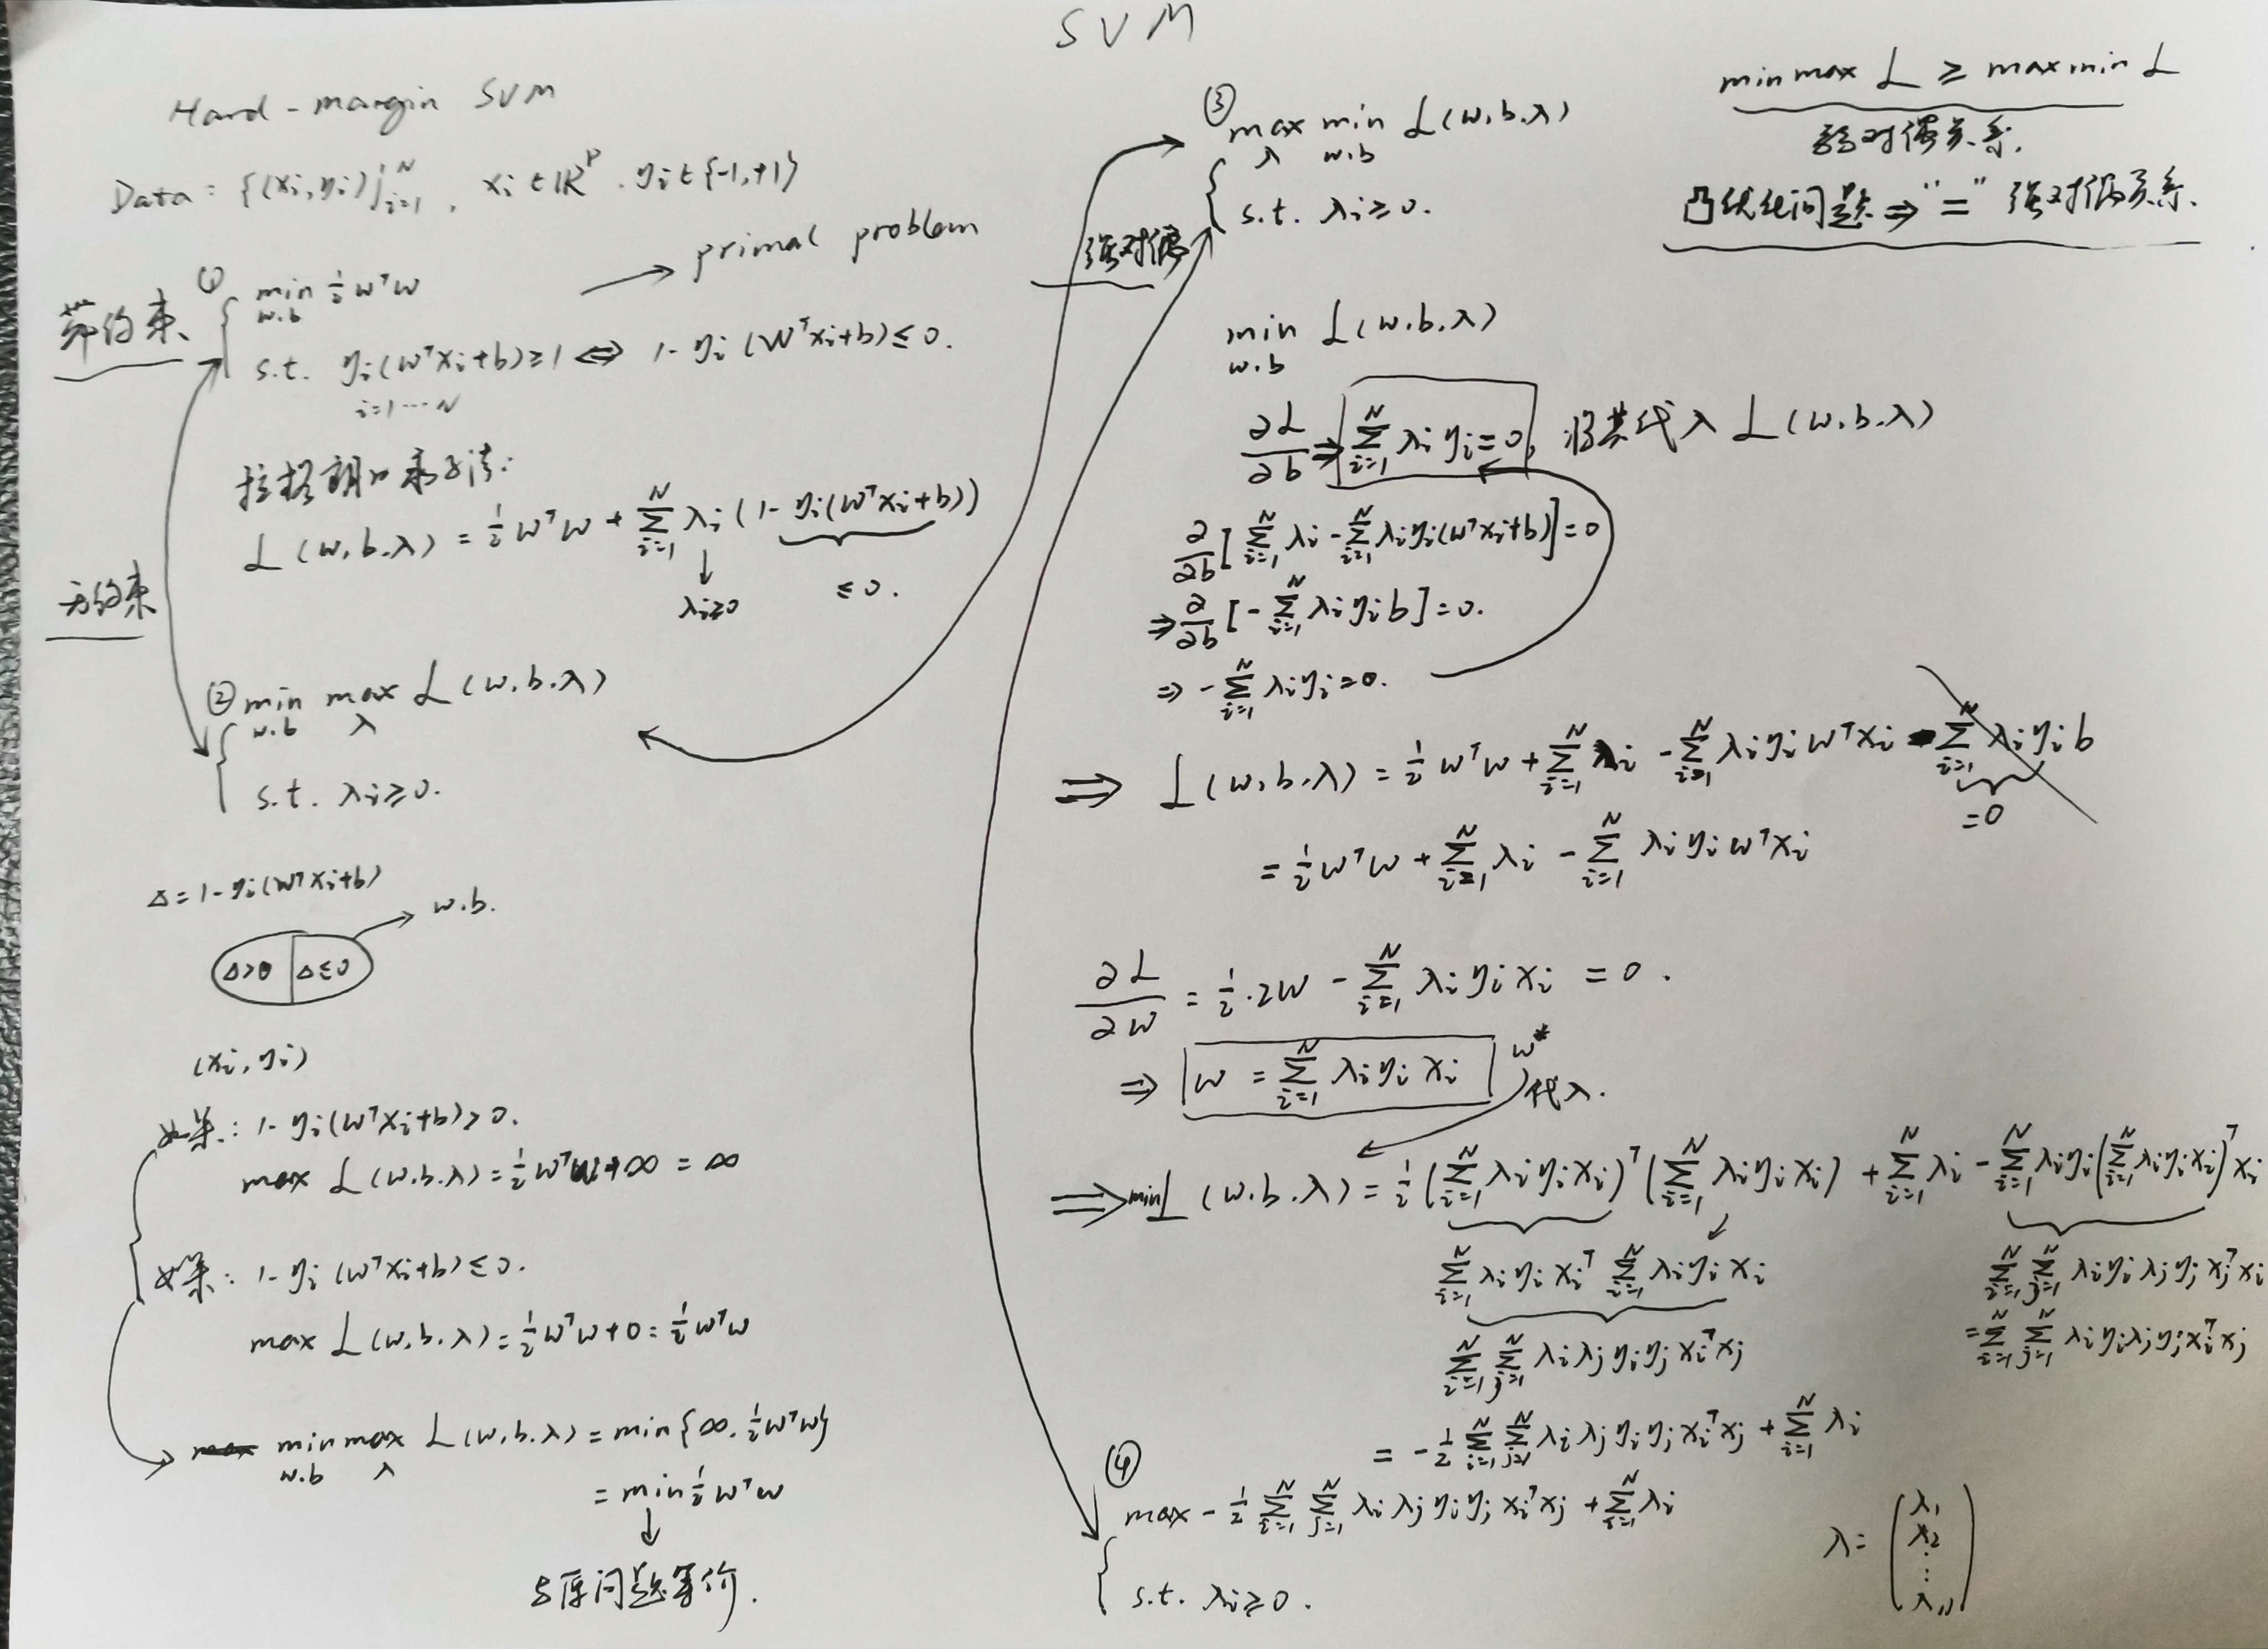 SVM
Hard-margin SVM
Data: {(xi,yi)}_{i=1}^N, xi∈ℝ^p. yi∈{-1,+1}
带约束
① min_{w.b} ½ w^T w → primal problem
s.t. yi(w^T xi+b)≥1 ⇔ 1-yi(w^T xi+b)≤0.
i=1…N
拉格朗日乘子法:
L(w,b.λ) = ½ w^T w + Σ_{i=1}^N λi(1-yi(w^T xi+b))
λi≥0 ≤0.
无约束
② min_{w.b} max_λ L(w.b.λ)
s.t. λi≥0.
Δ=1-yi(w^T xi+b)
w.b.
Δ>0 | Δ≤0
(xi,yi)
如果: 1-yi(w^T xi+b)>0.
max L(w.b.λ)=½ w^T w+∞=∞
如果: 1-yi(w^T xi+b)≤0.
max L(w.b.λ)=½ w^T w+0=½ w^T w
min_{w.b} max_λ L(w.b.λ)=min{∞.½ w^T w}
=min ½ w^T w
↓
与原问题等价.
强对偶
③ max_λ min_{w.b} L(w.b.λ)
s.t. λi≥0.
min max L ≥ max min L
弱对偶关系.
凸优化问题⇒"=" 强对偶关系.
min_{w.b} L(w.b.λ)
∂L/∂b ⇒ Σ_{i=1}^N λi yi=0, 将其代入 L(w.b.λ)
∂/∂b [Σ_{i=1}^N λi - Σ_{i=1}^N λi yi(w^T xi+b)]=0
⇒ ∂/∂b [-Σ_{i=1}^N λi yi b]=0.
⇒ -Σ_{i=1}^N λi yi=0.
⇒ L(w,b.λ) = ½ w^T w + Σ_{i=1}^N λi - Σ_{i=1}^N λi yi w^T xi - Σ_{i=1}^N λi yi b
=0
= ½ w^T w + Σ_{i=1}^N λi - Σ_{i=1}^N λi yi w^T xi
∂L/∂w = ½·2w - Σ_{i=1}^N λi yi xi = 0.
⇒ w = Σ_{i=1}^N λi yi xi w* 代入.
⇒ min L(w.b.λ) = ½ (Σ_{i=1}^N λi yi xi)^T (Σ_{i=1}^N λi yi xi) + Σ_{i=1}^N λi - Σ_{i=1}^N λi yi (Σ_{i=1}^N λi yi xi)^T xi
Σ_{i=1}^N λi yi xi^T Σ_{i=1}^N λi yi xi
Σ_{i=1}^N Σ_{j=1}^N λi yi λj yj xj^T xi
Σ_{i=1}^N Σ_{j=1}^N λi λj yi yj xi^T xj
=Σ_{i=1}^N Σ_{j=1}^N λi yi λj yj xi^T xj
= -½ Σ_{i=1}^N Σ_{j=1}^N λi λj yi yj xi^T xj + Σ_{i=1}^N λi
④ max -½ Σ_{i=1}^N Σ_{j=1}^N λi λj yi yj xi^T xj + Σ_{i=1}^N λi
s.t. λi≥0.
λ= (λ1 λ2 ⋮ λN)